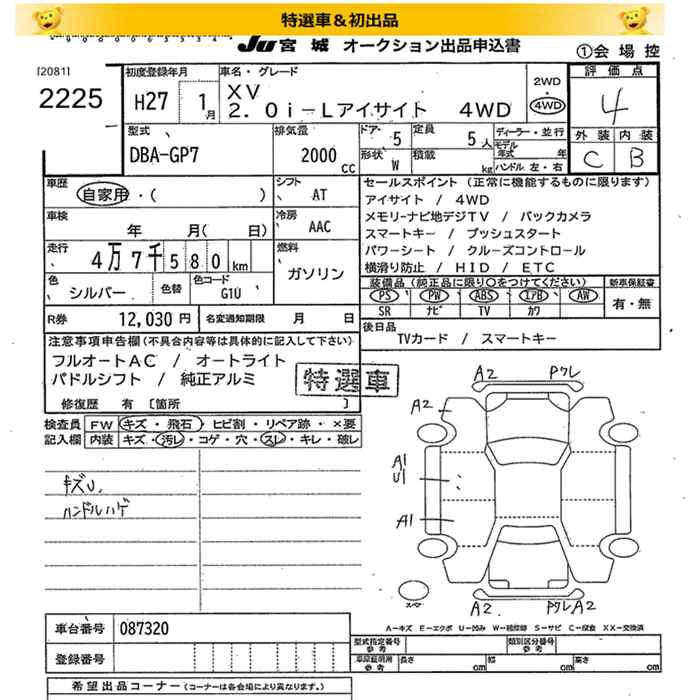 特選車＆初出品
JU 宮 城 オークション出品申込書
①会 場 控
[2081]
2225
初度登録年月
H27
1月
車名・グレード
XV
2.0i-Lアイサイト 4WD
2WD
・
4WD
評 価 点
4
外 装 内 装
C B
型式
DBA-GP7
排気量
2000 CC
ドア・ 5
定員 5人
形状 W
積載 kg
ディーラー・並行
モデル年式 年
ハンドル 左・右
車歴
自家用・( )
シフト
AT
車検
年 月( 日)
冷房
AAC
走行
4万7千580km
燃料
ガソリン
色
シルバー
色替
色コード
G1U
セールスポイント (正常に機能するものに限ります)
アイサイト / 4WD
メモリーナビ地デジTV / バックカメラ
スマートキー / プッシュスタート
パワーシート / クルーズコントロール
横滑り防止 / HID / ETC
装備品 (純正品に限り○をつけてください)
PS PW ABS エアB AW
SR ナビ TV カワ
新車保証書
有・無
R券 12,030 円
名変通知期限 月 日
後日品
TVカード / スマートキー
注意事項申告欄 (不具合内容等は具体的に記入して下さい)
フルオートAC / オートライト
パドルシフト / 純正アルミ
特選車
修復歴 有 [箇所 ]
検査員記入欄
FW キズ・飛石・ヒビ割・リペア跡・×要
内装 キズ・汚レ・コゲ・穴・スレ・キレ・破レ
キズU.
ハンドルハゲ
A2 Pワレ
A2
A1
U1
A1
スペア
A2 PワレA2
A-キズ E-エクボ U-凹み W-補修跡 S-サビ C-腐食 XX-交換済
車台番号 087320
登録番号
型式指定番号 参考
類別区分番号 参考
車庫証明用 参考
長さ cm
幅 cm
高さ cm
希望出品コーナー (コーナーは各会場により異なります。)